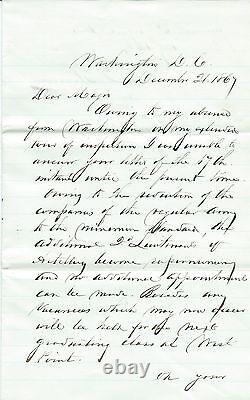 Washington D. C.
December 21. 1867
Dear Major
Owing to my absence
from Washington on my extended
tour of inspection I was unable to
answer your letter of the 17th
instant until the present time
Owing to the reduction of the
companies of the regular army
to the minimum standard, the
additional 2d Lieutenants of
Artillery become supernumerary
and no additional appointments
can be made. Besides any
vacancies which may now occur
will be held for the next
graduating class at West
Point.
On your